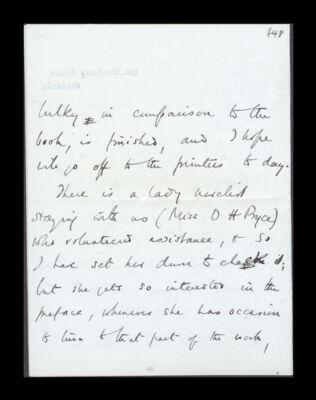 648
bulky in comparison to the
book, is finished, and I hope
will go off to the printers to-day.
There is a lady novelist
staying with us (Miss D H Pryce)
who volunteered assistance, & so
I have set her down to check it;
but she gets so interested in the
preface, whenever she has occasion
to turn to that part of the work,